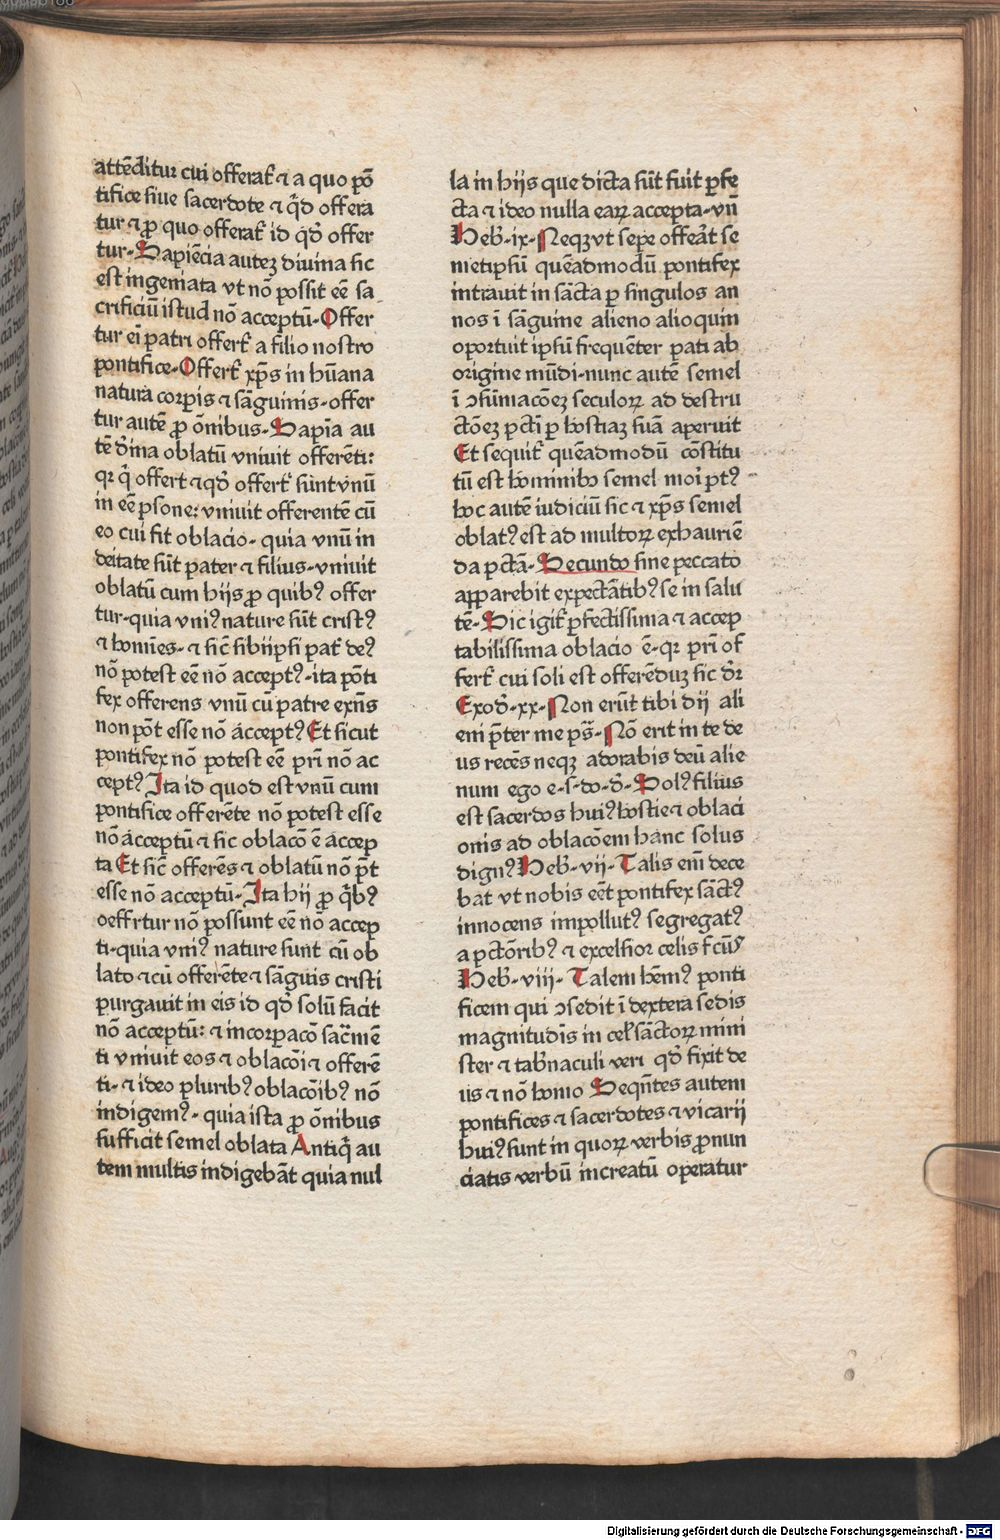 attēditur cui offerat᷑ ⁊ a quo pō
tifice siue sacerdote ⁊ qd̄ offera
tur ⁊ ꝓ quo offerat᷑ id qd̄ offer
tur-Sapiēcia autez diuina sic
est ingeniata vt nō possit eē sa
crificiū istud nō acceptū-Offer
tur ei patri offert᷑ a filio nostro
pontifice-Offert᷑ xp̄s in hūana
natura corpis ⁊ sāguinis-offer
tur autē ꝓ ōnibus-Sapīa au
tē d̄ina oblatū vniuit offerēti:
qꝛ q̄ offert ⁊ qd̄ offert᷑ sūnt vnū
in eē psone: vniuit offerentē cū
eo cui fit oblacio-quia vnū in
deitate sūt pater ⁊ filius-vniuit
oblatū cum hijs ꝓ quibꝰ offer
tur-quia vniꝰ nature sūt cristꝰ
⁊ homīes-⁊ sic̄ sibijpsi pat᷑ deꝰ
nō potest eē nō acceptꝰ-ita pōti
fex offerens vnū cū patre exn̄s
non pōt esse nō acceptꝰ Et sicut
pontifex nō potest eē pr̄i nō ac
ceptꝰ Ita id quod est vnū cum
pontifice offerēte nō potest esse
nō acceptū ⁊ sic oblacō ē accep
ta Et sic̄ offerēs ⁊ oblatū nō pt̄
esse nō acceptū-Ita hij ꝓ q̄bꝰ
oeffrtur nō possunt eē nō accep
ti-quia vniꝰ nature sunt cū ob
lato ⁊ cū offerēte ⁊ sāguis cristi
purgauit in eis id qd̄ solū facit
nō acceptū: ⁊ incorpacō sac̄mē
ti vniuit eos ⁊ oblacōi ⁊ offerē
ti-⁊ ideo pluribꝰ oblacōibꝰ nō
indigemꝰ-quia ista ꝓ ōnibus
sufficit semel oblata Antiq̄ au
tem multis indigebāt quia nul
la in hijs que dicta sūt fuit ꝑfe
cta ⁊ ideo nulla eaꝝ accepta-vn̄
Heb̄-ix-Neqꝫ vt sepe offeat᷑ se
metipsū quēadmodū pontifex
intrauit in sācta ꝑ singulos an
nos ī sāguine alieno alioquin
oportuit ipsū frequēter pati ab
origine mūdi-nunc autē semel
ī ꝯsūmacōeꝫ seculoꝝ ad destru
ctōeꝫ pcti ꝑ hostiaꝫ suā aperuit
Et sequit᷑ quēadmodū cōstitu
tū est hominibꝰ semel moī ptꝰ
hoc autē iudiciū sic ⁊ xp̄s semel
oblatꝰ est ad multoꝝ exhauriē
da pctā-Secundo sine peccato
apparebit expectātibꝰ se in salu
tē-Sic igit᷑ ꝑfectissima ⁊ accep
tabilissima oblacio ē-qꝛ pr̄i of
fert᷑ cui soli est offerēduꝫ sic dr̄
Exod̄-xx-Non erūt tibi dij ali
eni p̄ter me ps̄-Nō erit in te de
us recēs neqꝫ adorabis deū alie
num ego e-s-do-d̄-Solꝰ filius
est sacerdos huiꝰ hostie ⁊ oblaci
onis ad oblacōem hanc solus
dignꝰ Heb̄-vij-Talis enī dece
bat vt nobis eēt pontifex sāctꝰ
innocens impollutꝰ segregatꝰ
a pctōribꝰ ⁊ excelsior celis fc̄ꝰ
Heb̄-viij-Talem hēmꝰ ponti
ficem qui ꝯsedit ī dextera sedis
magnitudīs in cel̄ sāctoꝝ mini
ster ⁊ tab̄naculi veri qd̄ fixit de
us ⁊ nō homo Seqn̄tes autem
pontifices ⁊ sacerdotes ⁊ vicarij
huiꝰ sunt in quoꝝ verbis ꝓnun
ciatis verbū increatū operatur
Digitalisierung gefördert durch die Deutsche Forschungsgemeinschaft - DFG